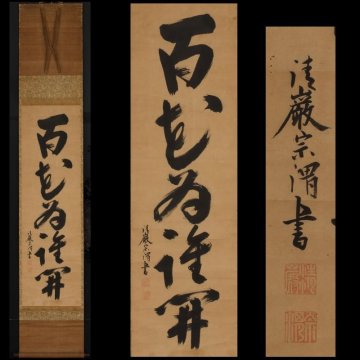 百花為誰開
清巖宗渭書
百花為誰開
清巖宗渭書
清巖宗渭書